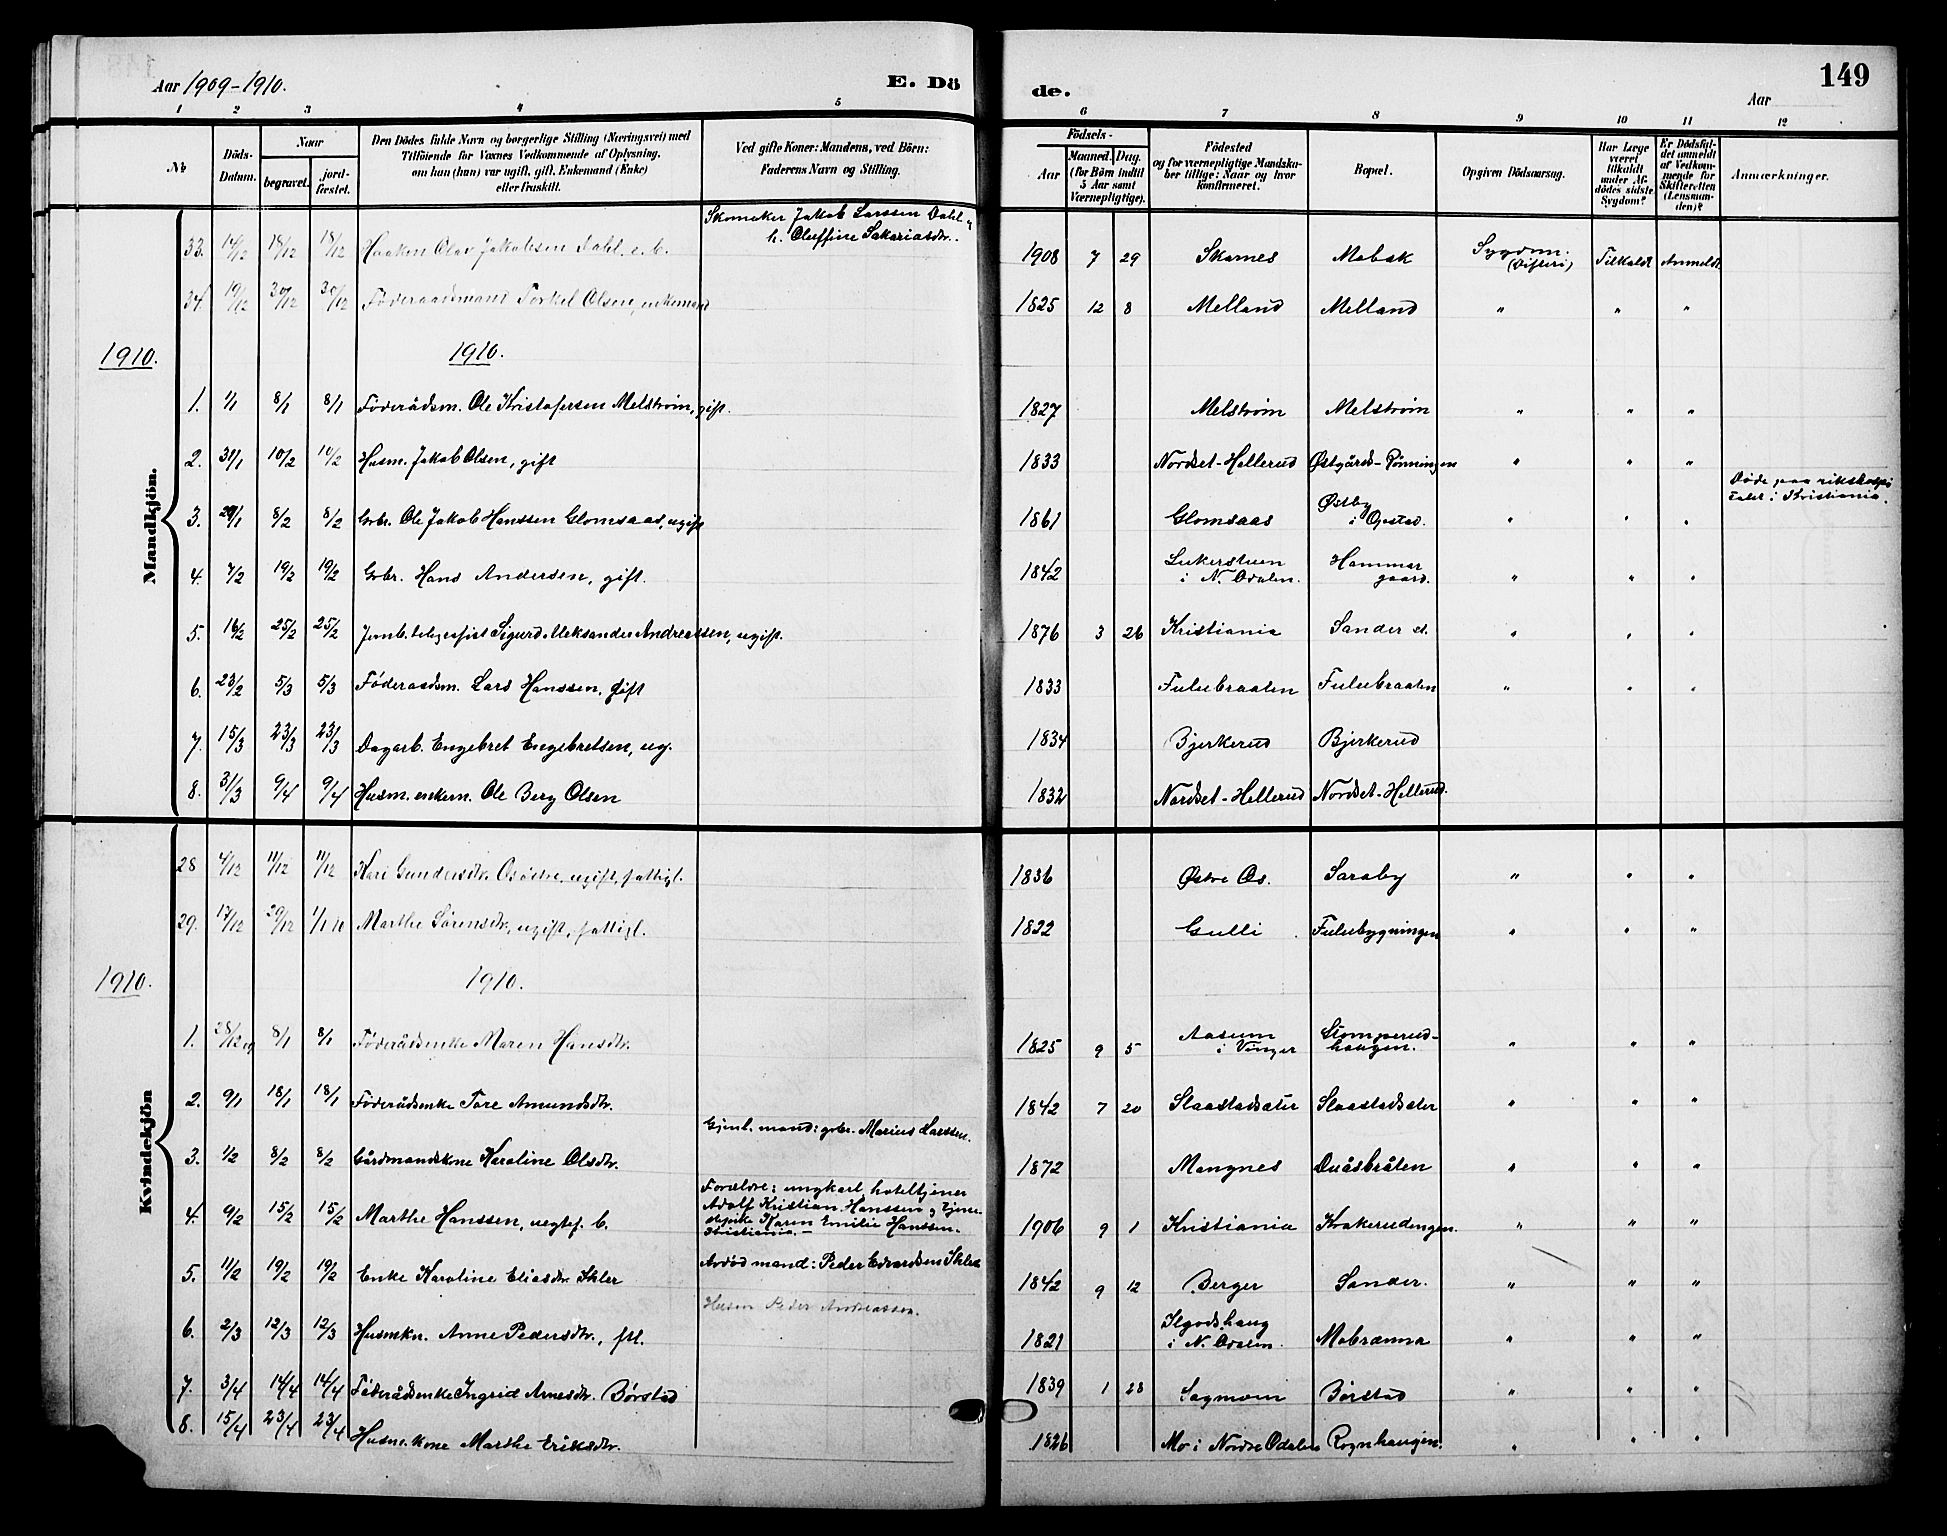 Aar 1909-1910.
E. Dö
de.
149
Aar
1 2 3 4 5 6 7 8 9 10 11 12
No
Döds-
Datum.
Naar
begravet.
jord-
fæstet.
Den Dödes fulde Navn og borgerlige Stilling (Næringsvei) med
Tilföiende for Voxnes Vedkommende af Oplysning,
om han (hun) var ugift, gift, Enkemand (Enke)
eller fraskilt.
Ved gifte Koner: Mandens, ved Börn:
Faderens Navn og Stilling.
Födsels-
Aar
Maaned.
Dag.
(for Börn indtil
5 Aar samt
Værnepligtige).
Födested
og for værnepligtige Mandska-
ber tillige: Naar og hvor
konfirmeret.
Bopæl.
Opgiven Dödsaarsag.
Har Læge
været
tilkaldt
under Af-
dödes sidste
Sygdom?
Er Dödsfal-
det anmeldt
af Vedkom-
mende for
Skifteretten
(Lensman-
den)?
Anmærkninger.
Mandkjön.
Skomaker Jakob Larssen Dahl og
h. Oluffine Sakariasdtr.
33. 14/12 18/12 18/12 Haaken Olav Jakobsen Dahl, e. b. 1908 7 29 Skarnes Mobæk Sygdom: (Difteri) Tilkaldt Anmeldt
34. 19/12 30/12 30/12 Föderaadsmand Torkel Olsen, enkemand 1825 12 8 Melland Melland " " "
1910. 1910.
1. 1/1 8/1 8/1 Föderådsm. Ole Kristofersen Melström, gift. 1827 Melström Melström " " "
2. 31/1 10/2 10/2 Husm. Jakob Olsen, gift 1833 Nordset-Hellerud Østgårds-Rönningen " " "
3. 29/1 8/2 8/2 Gbr. Ole Jakob Hanssen Glomsaas, ugift 1861 Glomsaas Østby i Opstad. " " " Döde paa rikshospi
talet i Kristiania.
4. 7/2 19/2 19/2 Gbr. Hans Andersen, gift. 1842 i N. Odalen. Hammer
gaard. " " "
5. 16/2 25/2 25/2 Jernb. telegrafist Sigurd Aleksander Andreassen, ugift. 1876 3 26 Kristiania Sander st. " " "
6. 23/2 5/3 5/3 Föderaadsm. Lars Hanssen, gift 1833 Fulubraaten Fulubraaten " " "
7. 15/3 23/3 23/3 Dagarb. Engebret Engebretsen, ug. 1834 Bjerkerud Bjerkerud
8. 31/3 9/4 9/4 Husm. enkem. Ole Berg Olsen 1832 Nordset-Hellerud Nordset-Hellerud.
Kvindekjön
28 4/12 11/12 11/12 Kari Gundersdtr. Osöstre, ugift, fattigl. 1836 Østre Os. Saraby " " "
29. 17/12 29/12 1/1 10 Marthe Sörensdtr., ugift, fattigl. 1822 Gulli Fulubygningen " " "
1910. 1910.
1. 28/12 09 8/1 8/1 Föderådsenke Maren Hansdtr. 1825 9 5 Aasum
i Vinger Slomperud-
haugen. " " "
2. 9/1 18/1 18/1 Föderådsenke Tore Amundsdtr. 1842 7 20 Slaastadsæter Slaastadsæter " " "
3. 1/2 8/2 8/2 Gårdmandskone Karoline Olsdtr. Gjenl. mand: gbr. Marius Larssen. 1872 Mangnes Duåsbråten " " "
4. 9/2 15/2 15/2 Marthe Hanssen, uegtef. b. Forældre: ungkarl, hoteltjener
Adolf Kristian Hanssen og tjene-
stepike Karen Emilie Hanssen.
Kristiania.- 1906 9 1 Kristiania Krakerudengen. " " "
5. 11/2 19/2 19/2 Enke Karoline Eliasdtr. Skler Avdöd mand: Peder Edvardsen Skler 1842 9 12 Berger Sander. " " "
6. 2/3 12/3 12/3 Husmkn. Anne Pedersdtr., ftl. Husm Peder Andreassen. 1821 i N. Odalen. Mobrænna " " "
7. 3/4 14/4 14/4 Föderådsenke Ingrid Arnesdtr. Börstad 1839 1 28 Sagmoen Börstad " " "
8. 15/4 23/4 23/4 Husm. kone Marthe Eriksdtr. 1826 Mo i Nordre Odalen Rognhaugen. " " "